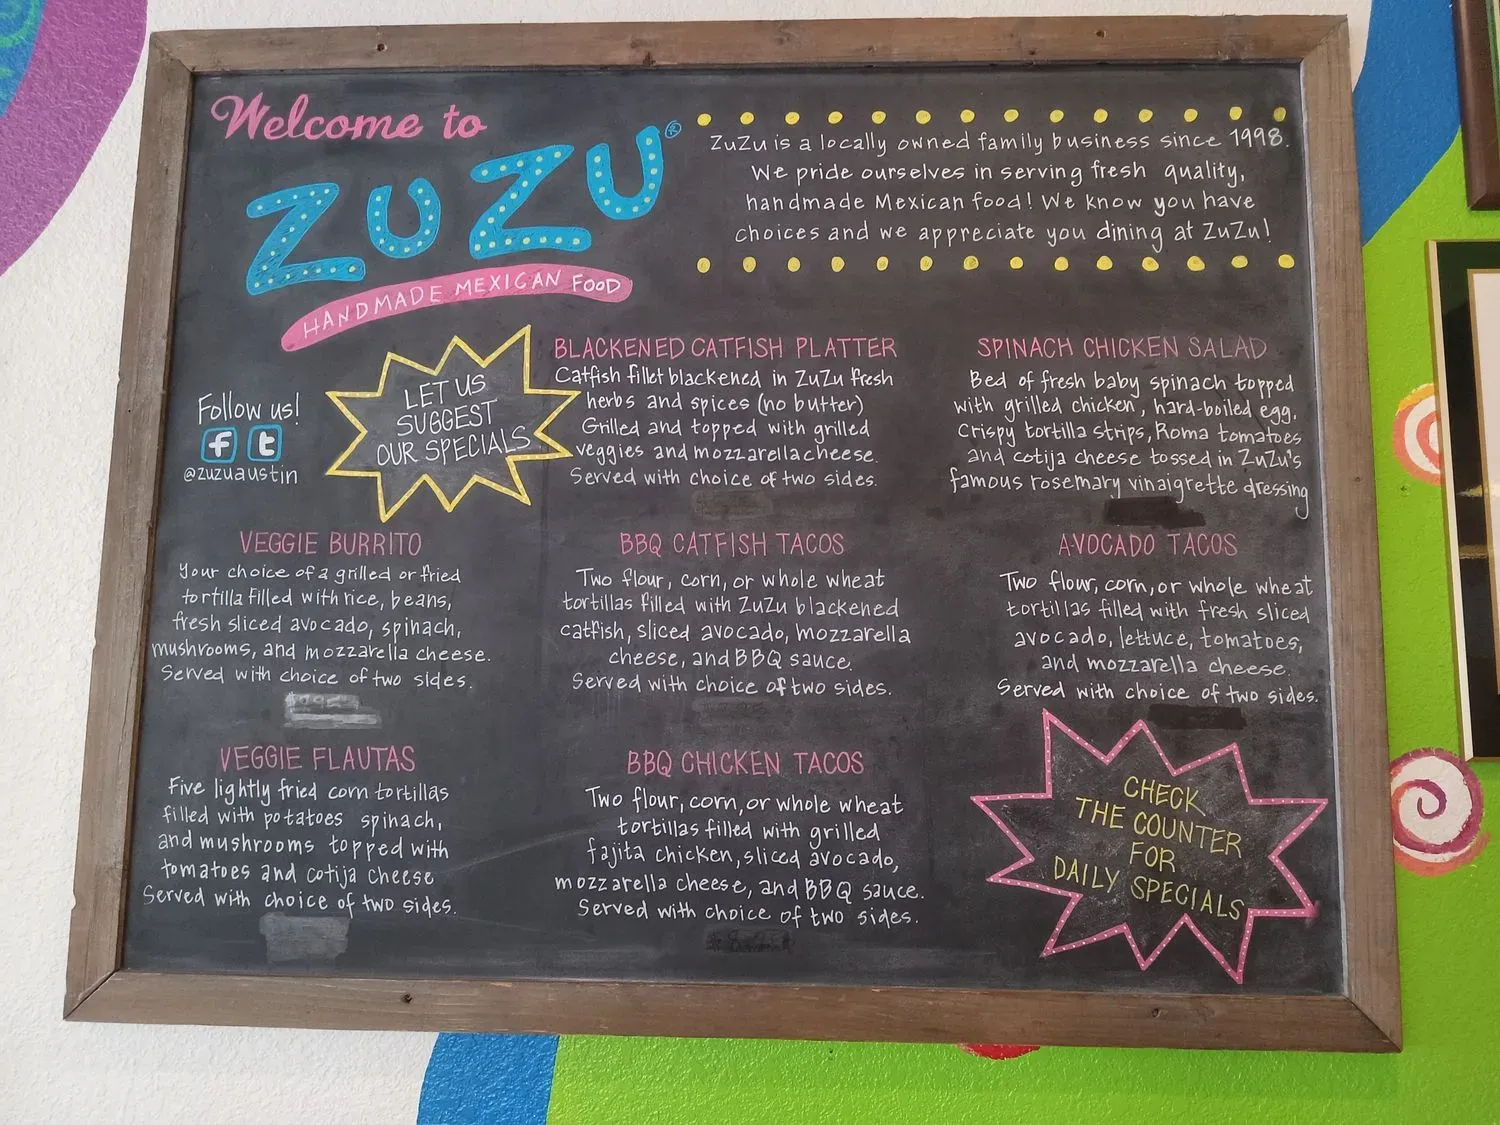 Welcome to
ZUZU®
HANDMADE MEXICAN FOOD
ZuZu is a locally owned family business since 1998.
We pride ourselves in serving fresh quality,
handmade Mexican food! We know you have
choices and we appreciate you dining at ZuZu!
Follow us!
f t
@zuzuaustin
LET US
SUGGEST
OUR SPECIALS
BLACKENED CATFISH PLATTER
Catfish fillet blackened in ZuZu fresh
herbs and spices (no butter)
Grilled and topped with grilled
veggies and mozzarella cheese.
Served with choice of two sides.
SPINACH CHICKEN SALAD
Bed of fresh baby spinach topped
with grilled chicken, hard-boiled egg,
Crispy tortilla strips, Roma tomatoes
and cotija cheese tossed in ZuZu's
famous rosemary vinaigrette dressing
VEGGIE BURRITO
Your choice of a grilled or fried
tortilla filled with rice, beans,
fresh sliced avocado, spinach,
mushrooms, and mozzarella cheese.
Served with choice of two sides.
BBQ CATFISH TACOS
Two flour, corn, or whole wheat
tortillas filled with ZuZu blackened
catfish, sliced avocado, mozzarella
cheese, and BBQ sauce.
Served with choice of two sides.
AVOCADO TACOS
Two flour, corn, or whole wheat
tortillas filled with fresh sliced
avocado, lettuce, tomatoes,
and mozzarella cheese.
Served with choice of two sides.
VEGGIE FLAUTAS
Five lightly fried corn tortillas
filled with potatoes spinach,
and mushrooms topped with
tomatoes and cotija cheese
Served with choice of two sides.
BBQ CHICKEN TACOS
Two flour, corn, or whole wheat
tortillas filled with grilled
fajita chicken, sliced avocado,
mozzarella cheese, and BBQ sauce.
Served with choice of two sides.
CHECK
THE COUNTER
FOR
DAILY SPECIALS